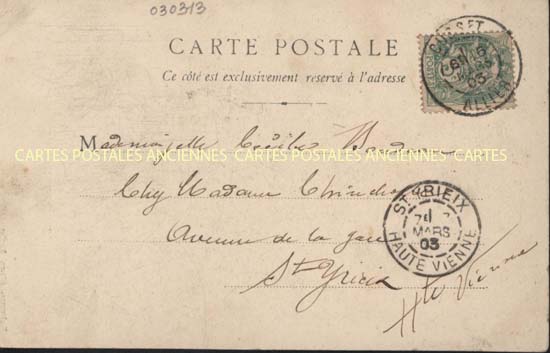 030313
CARTE POSTALE
Ce côté est exclusivement réservé à l'adresse
CUSSET
MARS
03
ALLIER
Mademoiselle Cécile
CARTES POSTALES ANCIENNES CARTES POSTALES ANCIENNES CARTES
Chez Madame
Avenue de la gare
St Yrieix
Hte Vienne
ST YRIEIX
MARS
03
HAUTE VIENNE